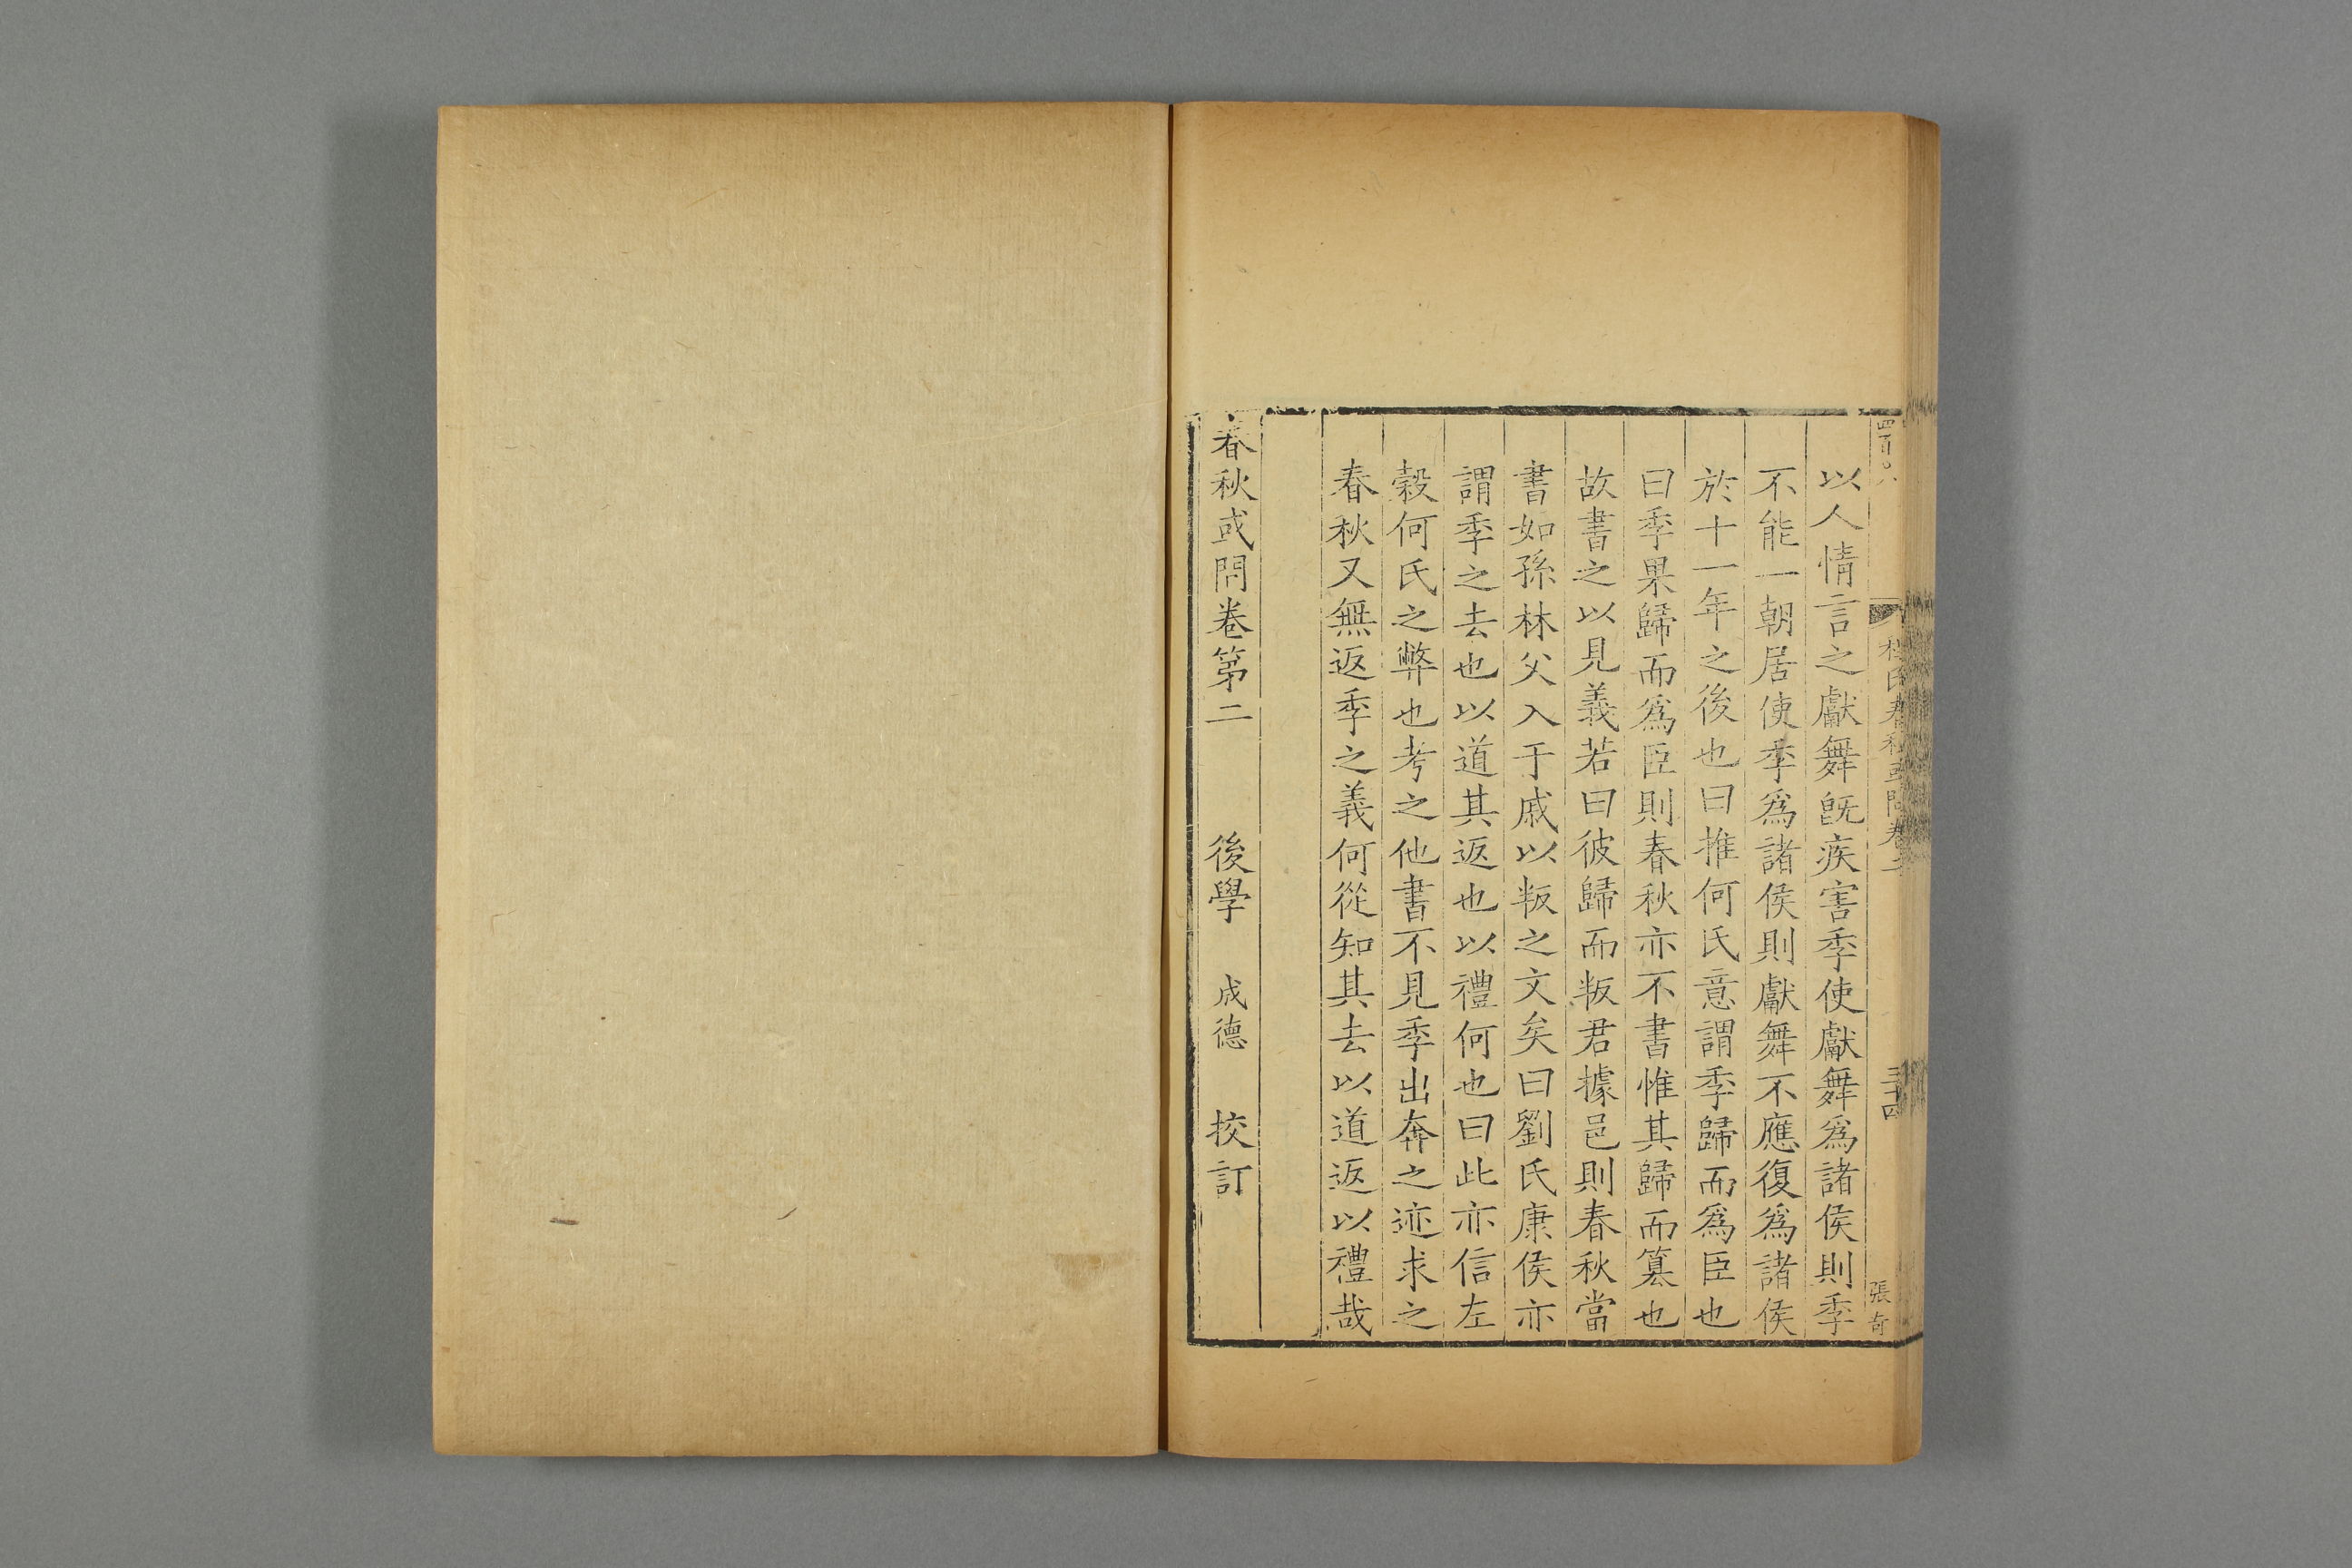 四百〇八
程氏春秋或問卷二
三十四
張奇
以人情言之獻舞旣疾害季使獻舞爲諸侯則季
不能一朝居使季爲諸侯則獻舞不應復爲諸侯
於十一年之後也曰推何氏意謂季歸而爲臣也
曰季果歸而爲臣則春秋亦不書惟其歸而篡也
故書之以見義若曰彼歸而叛君據邑則春秋當
書如孫林父入于戚以叛之文矣曰劉氏康侯亦
謂季之去也以道其返也以禮何也曰此亦信左
穀何氏之弊也考之他書不見季出奔之迹求之
春秋又無返季之義何從知其去以道返以禮哉
春秋或問卷第二 後學 成德 挍訂